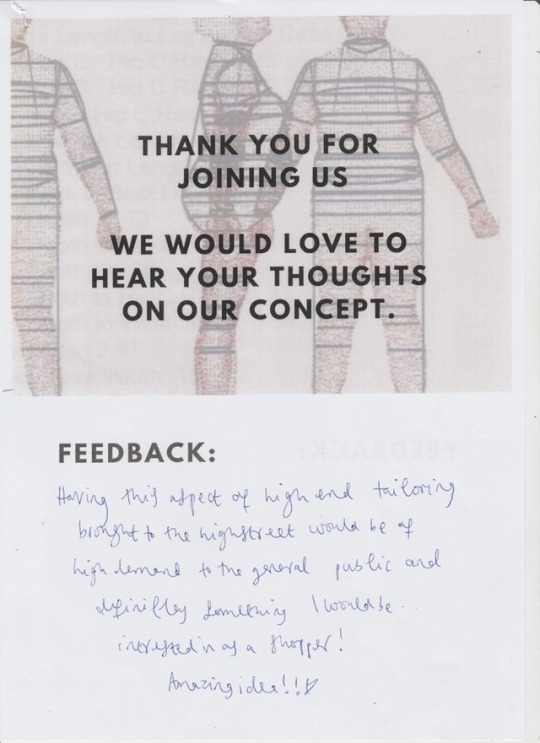 THANK YOU FOR
JOINING US
WE WOULD LOVE TO
HEAR YOUR THOUGHTS
ON OUR CONCEPT.
FEEDBACK:
Having this aspect of high end tailoring
brought to the highstreet would be of
high demand to the general public and
definitley something I would be
interested in as a shopper!
Amazing idea!!!